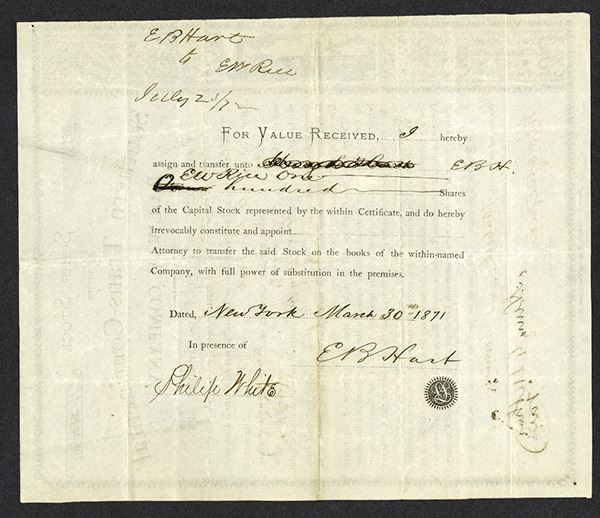 E B Hart
to
E W Rice
July
FOR VALUE RECEIVED, I hereby
assign and transfer unto E B H.
E W Rice One
hundred Shares
of the Capital Stock represented by the within Certificate, and do hereby
irrevocably constitute and appoint
Attorney to transfer the said Stock on the books of the within-named
Company, with full power of substitution in the premises.
Dated, New York March 30th 1871
In presence of
E B Hart
Philip White